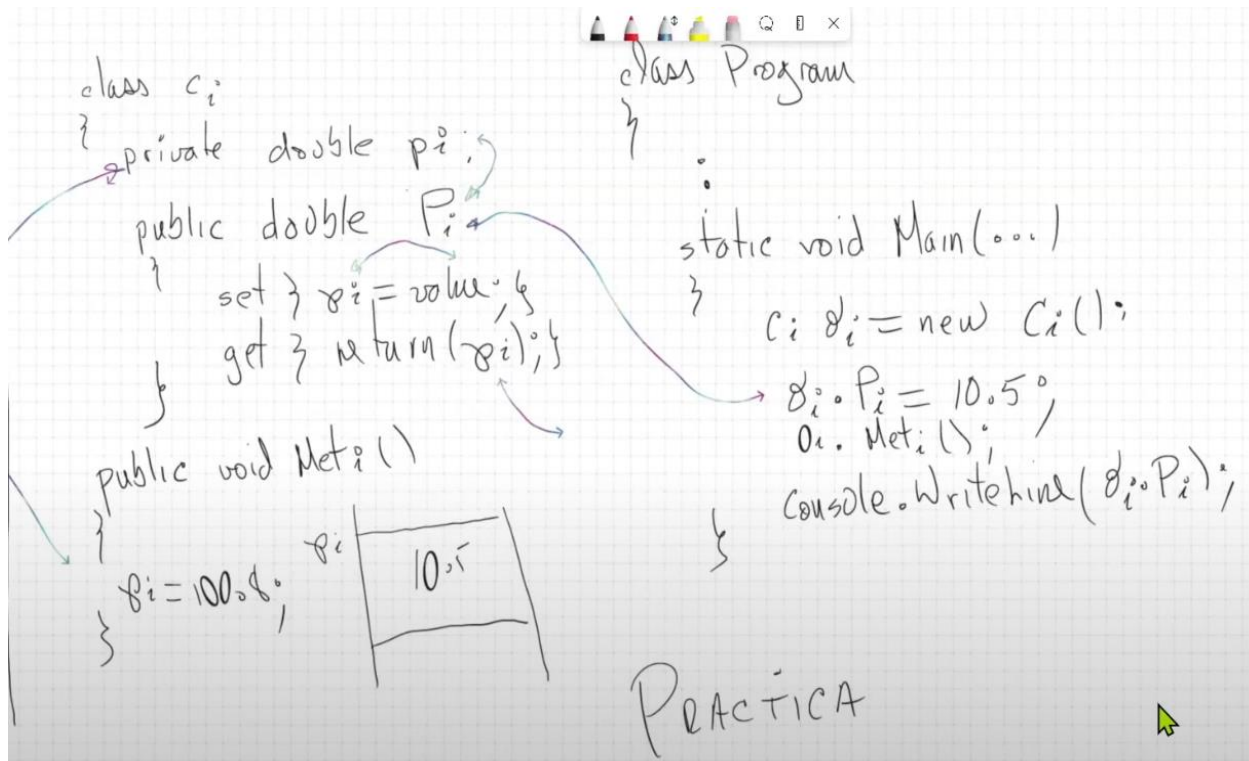 class Ci
{
private double pi;
public double Pi
{
set { pi = value; }
get { return(pi); }
}
public void Meti()
{
pi = 100.8;
}
pi
10.5
class Program
{
:
static void Main(...)
{
Ci Oi = new Ci();
Oi.Pi = 10.5;
Oi.Meti();
Console.WriteLine(Oi.Pi);
}
PRACTICA